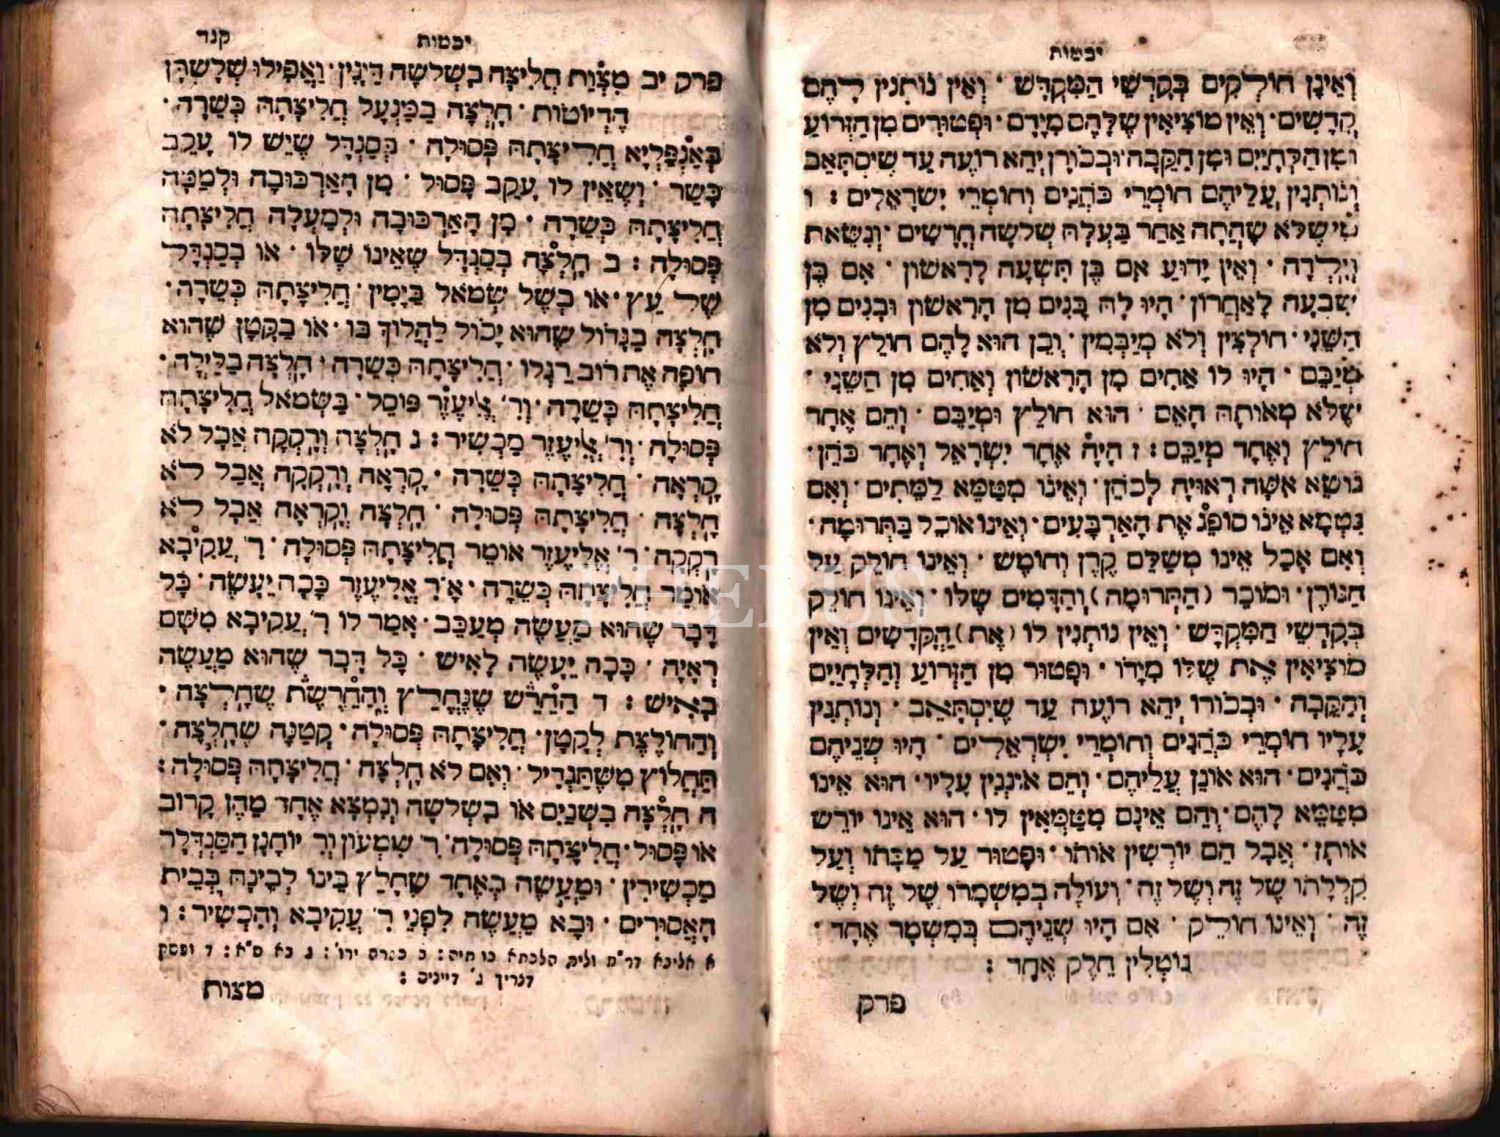 יבמות
וְאֵינָן חוֹלְקִים בְּקָדְשֵׁי הַמִּקְדָּשׁ · וְאֵין נוֹתְנִין לָהֶם
קֳדָשִׁים · וְאֵין מוֹצִיאִין שֶׁלָּהֶם מִיָּדָם · וּפְטוּרִים מִן הַזְּרוֹעַ
וּמִן הַלְּחָיַיִם וּמִן הַקֵּבָה · וּבְכוֹרָן יְהֵא רוֹעֶה עַד שֶׁיִּסְתָּאֵב
וְנוֹתְנִין עֲלֵיהֶם חוֹמְרֵי כֹהֲנִים וְחוֹמְרֵי יִשְׂרְאֵלִים : ו
מִי שֶׁלֹּא שָׁהֲתָה אַחַר בַּעְלָהּ שְׁלשָׁה חֳדָשִׁים · וְנִשֵּׂאת
וְיָלְדָה · וְאֵין יָדוּעַ אִם בֶּן תִּשְׁעָה לָרִאשׁוֹן · אִם בֶּן
שִׁבְעָה לָאַחֲרוֹן · הָיוּ לָהּ בָּנִים מִן הָרִאשׁוֹן וּבָנִים מִן
הַשֵּׁנִי · חוֹלְצִין וְלֹא מְיַבְּמִין · וְכֵן הוּא לָהֶם חוֹלֵץ וְלֹא
מְיַבֵּם · הָיוּ לוֹ אַחִים מִן הָרִאשׁוֹן וְאַחִים מִן הַשֵּׁנִי ·
שֶׁלֹּא מֵאוֹתָהּ הָאֵם · הוּא חוֹלֵץ וּמְיַבֵּם · וְהֵם אֶחָד
חוֹלֵץ וְאֶחָד מְיַבֵּם : ז הָיָה אֶחָד יִשְׂרָאֵל וְאֶחָד כֹּהֵן ·
נוֹשֵׂא אִשָּׁה רְאוּיָה לְכֹהֵן · וְאֵינוֹ מִטַּמֵּא לַמֵּתִים · וְאִם
נִטְמָא אֵינוֹ סוֹפֵג אֶת הָאַרְבָּעִים · וְאֵינוֹ אוֹכֵל בַּתְּרוּמָה ·
וְאִם אָכַל אֵינוֹ מְשַׁלֵּם קֶרֶן וְחוֹמֶשׁ · וְאֵינוֹ חוֹלֵק עַל
הַגּוֹרֶן · וּמוֹכֵר (הַתְּרוּמָה) וְהַדָּמִים שֶׁלּוֹ · וְאֵינוֹ חוֹלֵק
בְּקָדְשֵׁי הַמִּקְדָּשׁ · וְאֵין נוֹתְנִין לוֹ (אֶת) הַקֳּדָשִׁים וְאֵין
מוֹצִיאִין אֶת שֶׁלּוֹ מִיָּדוֹ · וּפָטוּר מִן הַזְּרוֹעַ וְהַלְּחָיַיִם
וְהַקֵּבָה · וּבְכוֹרוֹ יְהֵא רוֹעֶה עַד שֶׁיִּסְתָּאֵב · וְנוֹתְנִין
עָלָיו חוֹמְרֵי כֹהֲנִים וְחוֹמְרֵי יִשְׂרְאֵלִים · הָיוּ שְׁנֵיהֶם
כֹּהֲנִים · הוּא אוֹנֵן עֲלֵיהֶם · וְהֵם אוֹנְנִין עָלָיו · הוּא אֵינוֹ
מִטַּמֵּא לָהֶם · וְהֵם אֵינָם מִטַּמְּאִין לוֹ · הוּא אֵינוֹ יוֹרֵשׁ
אוֹתָן · אֲבָל הֵם יוֹרְשִׁין אוֹתוֹ · וּפָטוּר עַל מַכָּתוֹ וְעַל
קִלְלָתוֹ שֶׁל זֶה וְשֶׁל זֶה · וְעוֹלֶה בְּמִשְׁמָרוֹ שֶׁל זֶה וְשֶׁל
זֶה · וְאֵינוֹ חוֹלֵק · אִם הָיוּ שְׁנֵיהֶם בְּמִשְׁמָר אֶחָד ·
נוֹטְלִין חֵלֶק אֶחָד :
פרק
יבמות קנד
פרק יב מִצְוַת חֲלִיצָה בִּשְׁלשָׁה דַיָּנִין · וַאֲפִילוּ שְׁלָשְׁתָּן
הֶדְיוֹטוֹת · חָלְצָה בְמִנְעָל חֲלִיצָתָהּ כְּשֵׁרָה ·
בְּאַנְפִּלְיָא חֲלִיצָתָהּ פְּסוּלָה · בְּסַנְדָּל שֶׁיֶּשׁ לוֹ עָקֵב
כָּשֵׁר · וְשֶׁאֵין לוֹ עָקֵב פָּסוּל · מִן הָאַרְכּוּבָה וּלְמַטָּה
חֲלִיצָתָהּ כְּשֵׁרָה · מִן הָאַרְכּוּבָה וּלְמַעְלָה חֲלִיצָתָהּ
פְּסוּלָה : ב חָלְצָה בְסַנְדָּל שֶׁאֵינוֹ שֶׁלּוֹ · אוֹ בְסַנְדָּל
שֶׁל עֵץ · אוֹ בְשֶׁל שְׂמֹאל בַּיָּמִין · חֲלִיצָתָהּ כְּשֵׁרָה ·
חָלְצָה בְגָדוֹל שֶׁהוּא יָכוֹל לַהֲלוֹךְ בּוֹ · אוֹ בְקָטָן שֶׁהוּא
חוֹפֶה אֶת רוֹב רַגְלוֹ · חֲלִיצָתָהּ כְּשֵׁרָה · חָלְצָה בַלַּיְלָה
חֲלִיצָתָהּ כְּשֵׁרָה · וְר' אֱלִיעֶזֶר פּוֹסֵל · בַּשְּׂמֹאל חֲלִיצָתָהּ
פְּסוּלָה · וְר' אֱלִיעֶזֶר מַכְשִׁיר : ג חָלְצָה וְרָקְקָה אֲבָל לֹא
קָרְאָה · חֲלִיצָתָהּ כְּשֵׁרָה · קָרְאָה וְרָקְקָה אֲבָל לֹא
חָלְצָה · חֲלִיצָתָהּ פְּסוּלָה · חָלְצָה וְקָרְאָה אֲבָל לֹא
רָקְקָה · ר' אֱלִיעֶזֶר אוֹמֵר חֲלִיצָתָהּ פְּסוּלָה · ר' עֲקִיבָא
אוֹמֵר חֲלִיצָתָהּ כְּשֵׁרָה · אָ"ר אֱלִיעֶזֶר כָּכָה יֵעָשֶׂה · כָּל
דָּבָר שֶׁהוּא מַעֲשֶׂה מְעַכֵּב · אָמַר לוֹ ר' עֲקִיבָא מִשָּׁם
רְאָיָה · כָּכָה יֵעָשֶׂה לָאִישׁ · כָּל דָּבָר שֶׁהוּא מַעֲשֶׂה
בָאִישׁ : ד הַחֵרֵשׁ שֶׁנֶּחֱלַץ וְהַחֵרֶשֶׁת שֶׁחָלְצָה ·
וְהַחוֹלֶצֶת לְקָטָן · חֲלִיצָתָהּ פְּסוּלָה · קְטַנָּה שֶׁחָלְצָה ·
תַּחֲלוֹץ מִשֶּׁתַּגְדִּיל · וְאִם לֹא חָלְצָה · חֲלִיצָתָהּ פְּסוּלָה :
ה חָלְצָה בִשְׁנַיִם אוֹ בִשְׁלשָׁה וְנִמְצָא אֶחָד מֵהֶן קָרוֹב
אוֹ פָסוּל · חֲלִיצָתָהּ פְּסוּלָה · ר' שִׁמְעוֹן וְר' יוֹחָנָן הַסַּנְדְּלָר
מַכְשִׁירִין · וּמַעֲשֶׂה בְאֶחָד שֶׁחָלַץ בֵּינוֹ לְבֵינָהּ בְּבֵית
הָאֲסוּרִים · וּבָא מַעֲשֶׂה לִפְנֵי ר' עֲקִיבָא וְהִכְשִׁיר : ו
א אליבא דר"מ ולית הלכתא כוותיה : ב כגרס ירו' : ג בא ס"א : ד ופסק
דצריך ג' דיינים :
מצות